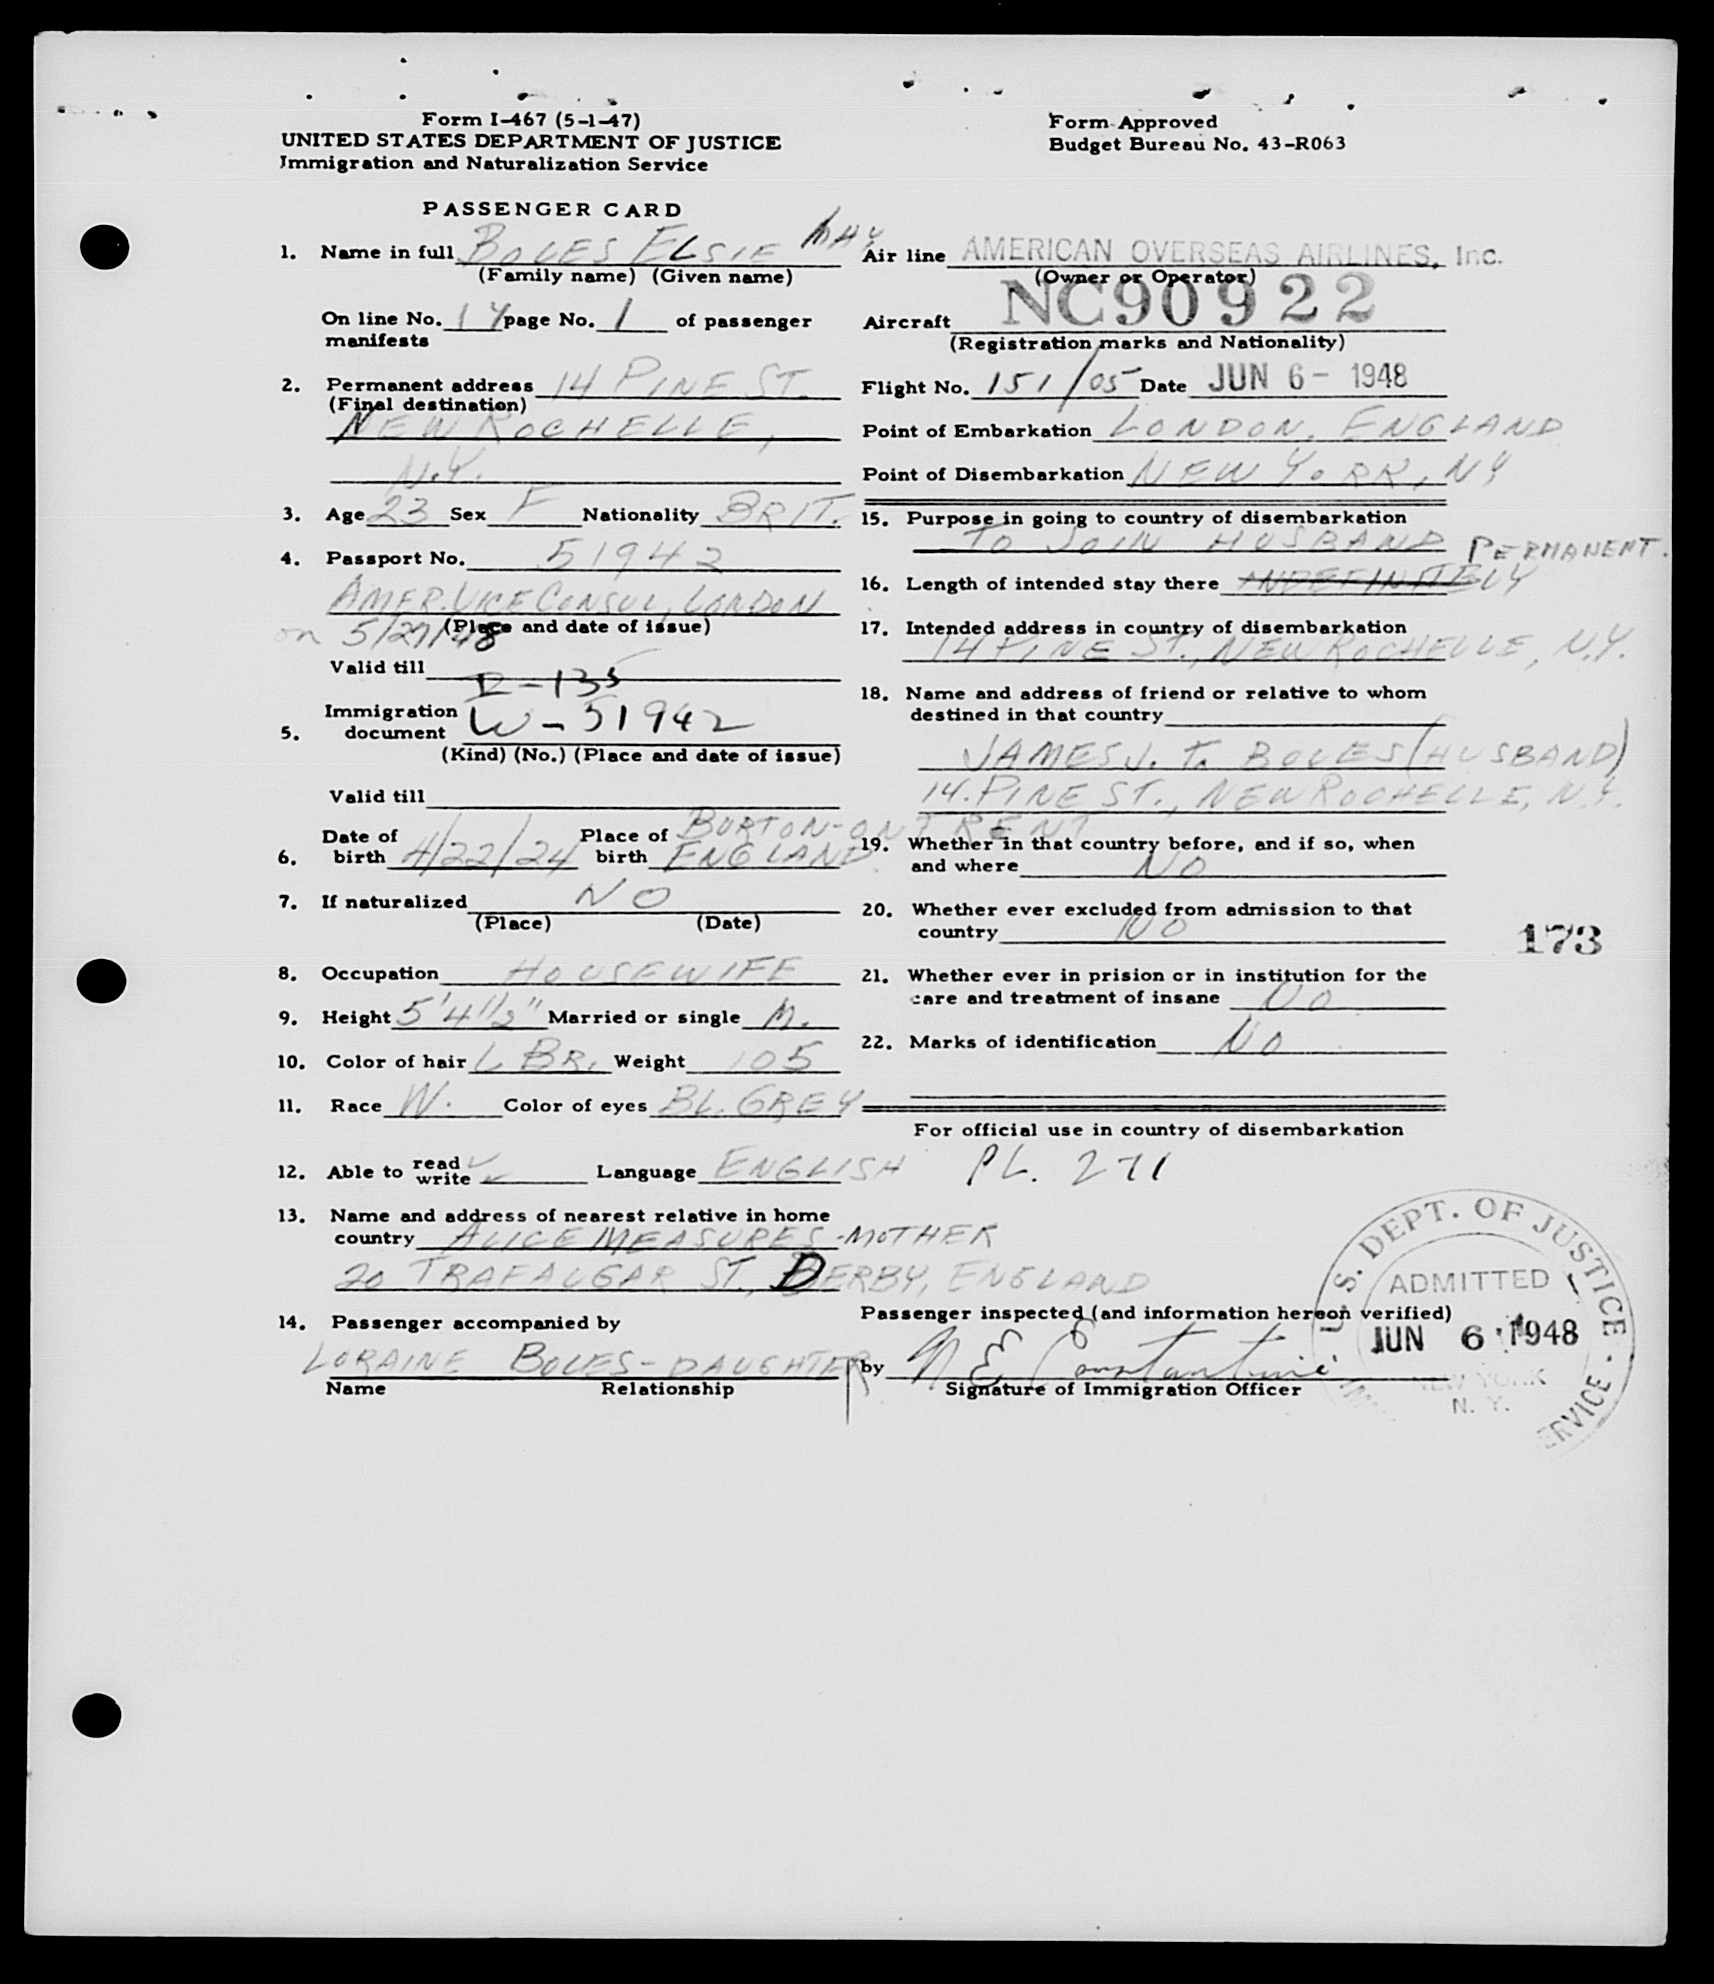 Form I-467 (5-1-47)
UNITED STATES DEPARTMENT OF JUSTICE
Immigration and Naturalization Service
Form Approved
Budget Bureau No. 43-R063
PASSENGER CARD
1. Name in full BOLES ELSIE MAY
(Family name) (Given name)
On line No. 14 page No. 1 of passenger
manifests
2. Permanent address 14 PINE ST.
(Final destination)
NEW ROCHELLE,
N.Y.
3. Age 23 Sex F Nationality BRIT.
4. Passport No. 51942
AMER. VICE CONSUL, LONDON
(Place and date of issue)
on 5/27/48
Valid till
I-135
Immigration
5. document W-51942
(Kind) (No.) (Place and date of issue)
Valid till
6. Date of birth 4/22/24 Place of birth BURTON-ON TRENT
ENGLAND
7. If naturalized NO
(Place) (Date)
8. Occupation HOUSEWIFE
9. Height 5'4 1/2" Married or single M.
10. Color of hair L BR. Weight 105
11. Race W. Color of eyes BL. GREY
12. Able to read ✓ write ✓ Language ENGLISH
13. Name and address of nearest relative in home
country ALICE MEASURES - MOTHER
20 TRAFALGAR ST., DERBY, ENGLAND
14. Passenger accompanied by
LORAINE BOLES - DAUGHTER
Name Relationship
Air line AMERICAN OVERSEAS AIRLINES, Inc.
(Owner or Operator)
Aircraft NC90922
(Registration marks and Nationality)
Flight No. 151/05 Date JUN 6 - 1948
Point of Embarkation LONDON, ENGLAND
Point of Disembarkation NEW YORK, NY
15. Purpose in going to country of disembarkation
TO JOIN HUSBAND
PERMANENT.
16. Length of intended stay there INDEFINITELY
17. Intended address in country of disembarkation
14 PINE ST., NEW ROCHELLE, N.Y.
18. Name and address of friend or relative to whom
destined in that country
JAMES J. T. BOLES (HUSBAND)
14. PINE ST., NEW ROCHELLE, N.Y.
19. Whether in that country before, and if so, when
and where NO
20. Whether ever excluded from admission to that
country NO
173
21. Whether ever in prision or in institution for the
care and treatment of insane NO
22. Marks of identification NO
For official use in country of disembarkation
PL. 271
Passenger inspected (and information hereon verified)
by N E Constantine
Signature of Immigration Officer
U. S. DEPT. OF JUSTICE
ADMITTED
JUN 6 1948
NEW YORK
N. Y.
SERVICE